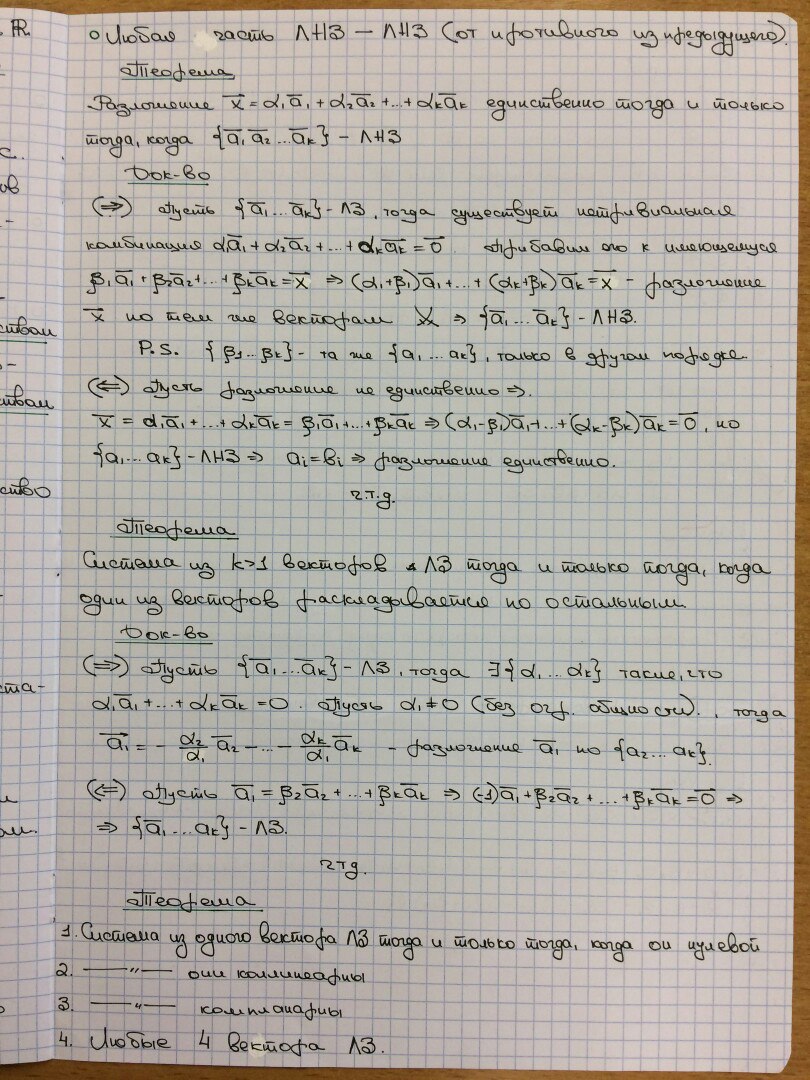 ℝ
с.
ов
ствам
ствам
ство
ста-
ам.
○ Любая часть ЛНЗ — ЛНЗ (от противного из предыдущего).
Теорема
Разложение x̄ = α₁ā₁ + α₂ā₂ + ... + αₖāₖ единственно тогда и только
тогда, когда {ā₁ ā₂ ... āₖ} – ЛНЗ
Док-во
(⇒) Пусть {ā₁ ... āₖ} – ЛЗ, тогда существует нетривиальная
комбинация α₁ā₁ + α₂ā₂ + ... + αₖāₖ = 0̄. Прибавим его к имеющемуся
β₁ā₁ + β₂ā₂ + ... + βₖāₖ = x̄ ⇒ (α₁+β₁)ā₁ + ... + (αₖ+βₖ)āₖ = x̄ – разложение
x̄ по тем же векторам ⇒ {ā₁ ... āₖ} – ЛНЗ.
P.S. {β₁ ... βₖ} – та же {a₁ ... aₖ}, только в другом порядке.
(⇐) Пусть разложение не единственно ⇒.
x̄ = α₁ā₁ + ... + αₖāₖ = β₁ā₁ + ... + βₖāₖ ⇒ (α₁-β₁)ā₁ + ... + (αₖ-βₖ)āₖ = 0̄, но
{a₁ ... aₖ} – ЛНЗ ⇒ aᵢ = bᵢ ⇒ разложение единственно.
ч.т.д.
Теорема
Система из k>1 векторов ЛЗ тогда и только тогда, когда
один из векторов раскладывается по остальным.
Док-во
(⇒) Пусть {ā₁ ... āₖ} – ЛЗ, тогда ∃{α₁ ... αₖ} такие, что
α₁ā₁ + ... + αₖāₖ = 0. Пусть α₁ ≠ 0 (без огр. общности)., тогда
ā₁ = - α₂/α₁ ā₂ - ... - αₖ/α₁ āₖ – разложение ā₁ по {a₂ ... aₖ}.
(⇐) Пусть ā₁ = β₂ā₂ + ... + βₖāₖ ⇒ (-1)ā₁ + β₂ā₂ + ... + βₖāₖ = 0̄ ⇒
⇒ {ā₁ ... aₖ} – ЛЗ.
чтд.
Теорема
1. Система из одного вектора ЛЗ тогда и только тогда, когда он нулевой
2. —"— они коллинеарны
3. —"— компланарны
4. Любые 4 вектора ЛЗ.